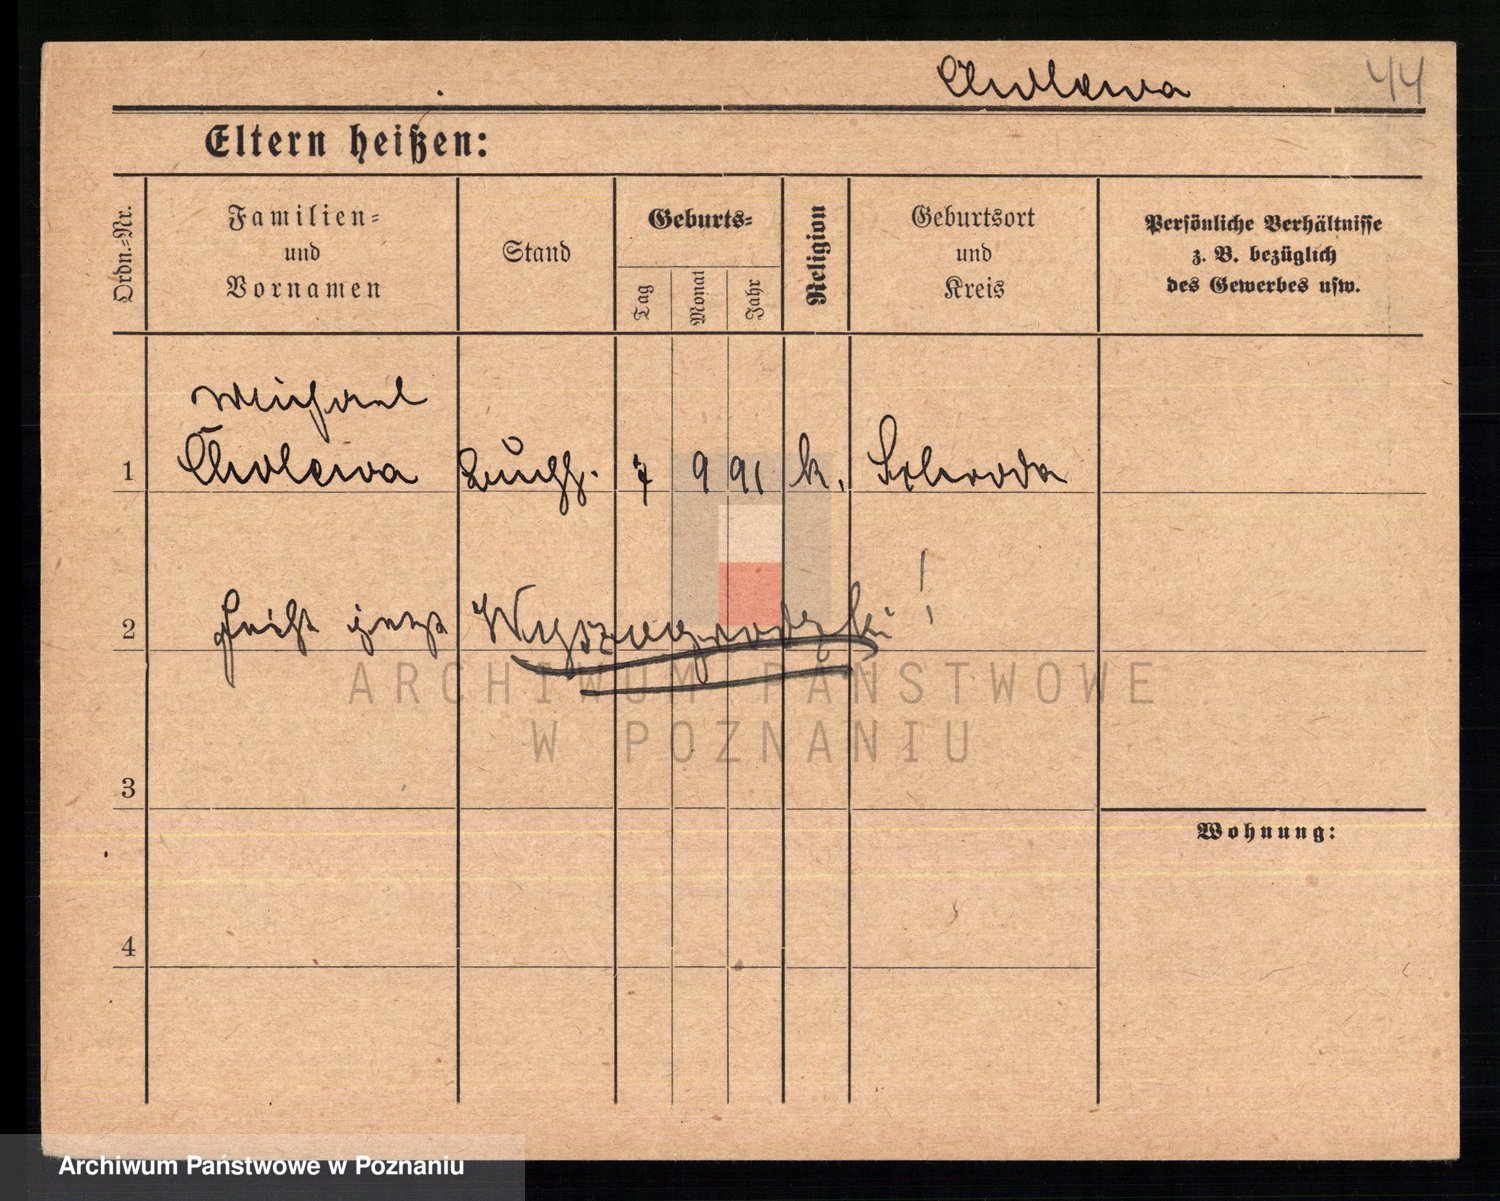 Cholewa 44
Eltern heißen:
Ordn.-Nr.
Familien-
und
Vornamen
Stand
Geburts-
Tag
Monat
Jahr
Religion
Geburtsort
und
Kreis
Persönliche Verhältnisse
z. B. bezüglich
des Gewerbes usw.
Michael
1 Cholewa Buchh. 7 9 91 k. Schroda
2 heißt jetzt Wyszogrodzki!
ARCHIWUM PAŃSTWOWE
W POZNANIU
3
Wohnung:
4
Archiwum Państwowe w Poznaniu